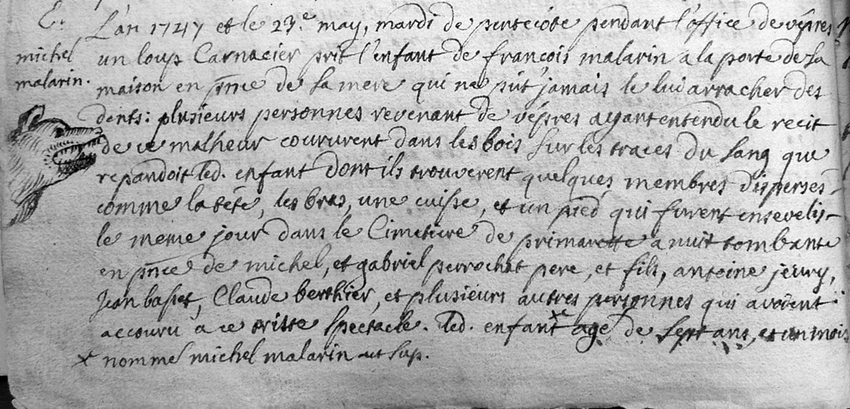 E.
michel
malarin.
L'an 1747 et le 23.e may, mardi de pentecôte pendant l'office de vépres
un loup Carnacier prit l'enfant de françois malarin a la porte de sa
maison en pnce de sa mere qui ne put jamais le lui arracher des
dents: plusieurs personnes revenant de vépres ayant entendu le recit
de ce malheur coururent dans les bois sur les traces du sang que
repandoit led. enfant dont ils trouverent quelques membres disperses
comme la tête, les bras, une cuisse, et un pied qui furent ensevelis
le meme jour dans le Cimetiere de primarette a nuit tombante
en pnce de michel, et gabriel perrochat pere, et fils, antoine jeury,
Jean basset, Claude berthier, et plusieurs autres personnes qui avoient
accouru a ce triste spectacle. led. enfant x agé de sept ans, et un mois
x nommé michel malarin ut sup.